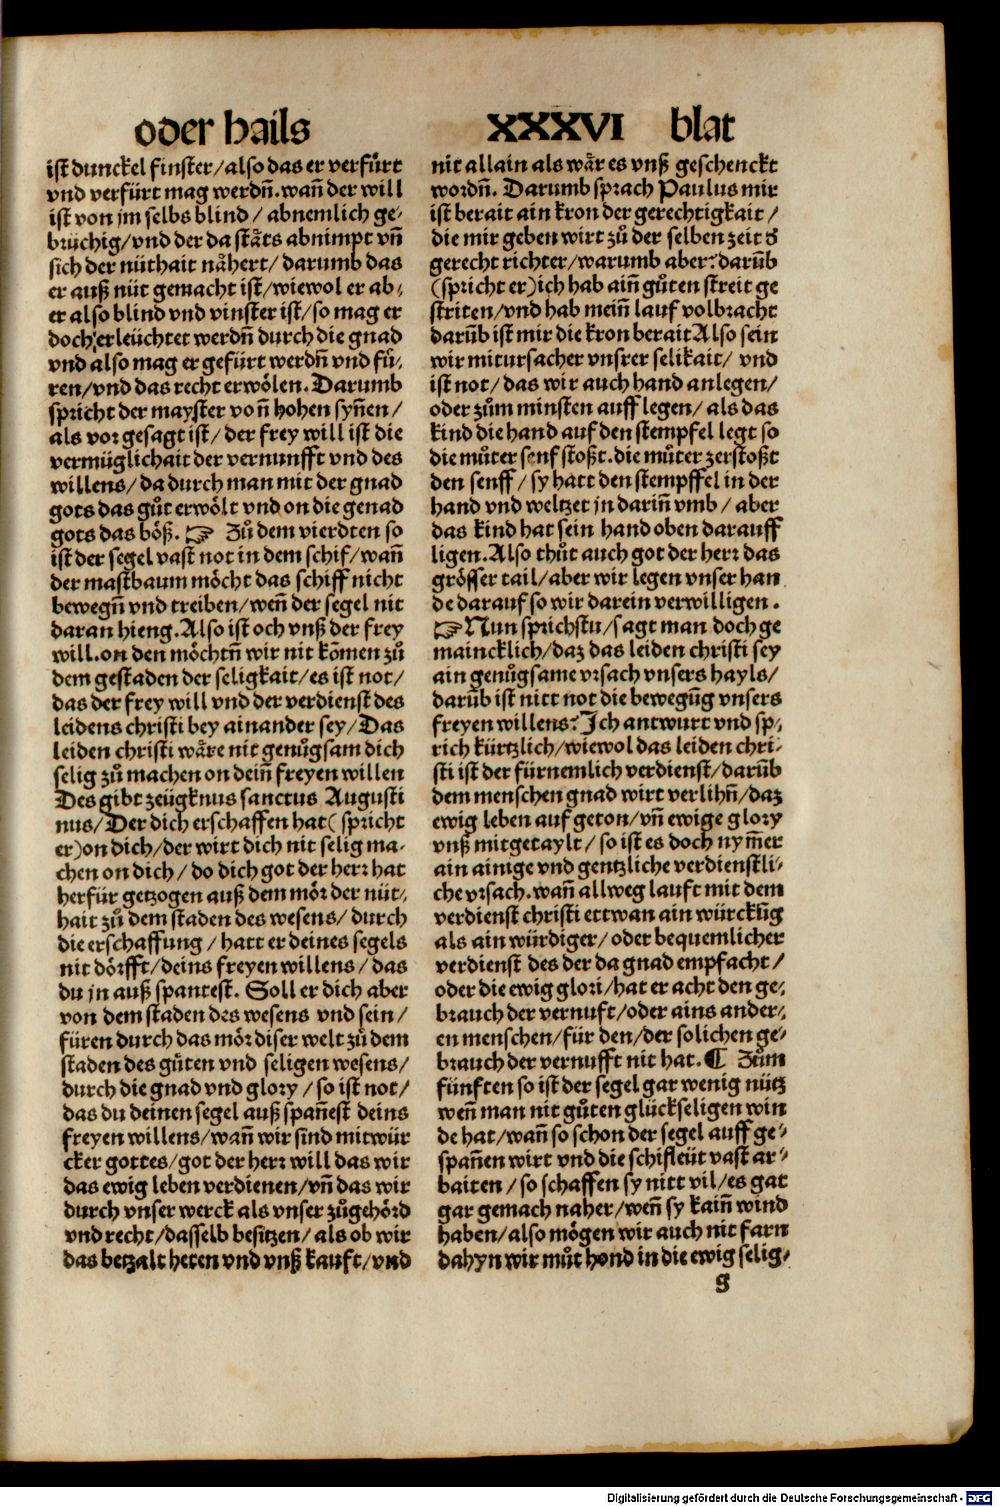 oder hails
XXXVI blat
ist dunckel finster/also das er verfůrt
vnd verfürt mag werdñ.wañ der will
ist von jm selbs blind / abnemlich ge⸗
brüchig/vnd der da stäts abnimpt vñ
sich der nüthait nähert/ darumb das
er auß nüt gemacht ist/wiewol er ab⸗
er also blind vnd vinster ist/so mag er
doch erleüchtet werdñ durch die gnad
vnd also mag er gefürt werdñ vnd fü⸗
ren/vnd das recht erwölen.Darumb
spricht der mayster voñ hohen syñen/
als vor gesagt ist/ der frey will ist die
vermüglichait der vernunfft vnd des
willens/da durch man mit der gnad
gots das gůt erwölt vnd on die genad
gots das böß. ☞ Zů dem vierdten so
ist der segel vast not in dem schif/wañ
der mastbaum möcht das schiff nicht
bewegñ vnd treiben/weñ der segel nit
daran hieng.Also ist och vnß der frey
will.on den möchtñ wir nit kömen zů
dem gestaden der seligkait/es ist not/
das der frey will vnd der verdienst des
leidens christi bey ainander sey/Das
leiden christi wäre nit genůgsam dich
selig zů machen on deiñ freyen willen
Des gibt zeügknus sanctus Augusti
nus/Der dich erschaffen hat( spricht
er)on dich/der wirt dich nit selig ma⸗
chen on dich / do dich got der herr hat
herfür getzogen auß dem mör der nüt⸗
hait zů dem staden des wesens/ durch
die erschaffung / hatt er deines segels
nit dörfft/deins freyen willens/ das
du jn auß spantest. Soll er dich aber
von dem staden des wesens vnd sein/
füren durch das mör diser welt zů dem
staden des gůten vnd seligen wesens/
durch die gnad vnd glory / so ist not/
das du deinen segel auß spañest deins
freyen willens/wañ wir sind mitwür
cker gottes/got der herr will das wir
das ewig leben verdienen/vñ das wir
durch vnser werck als vnser zůgehörd
vnd recht/dasselb besitzen/ als ob wir
das betzalt heten vnd vnß kauft/vnd
nit allain als wär es vnß geschenckt
wordñ. Darumb sprach Paulus mir
ist berait ain kron der gerechtigkait /
die mir geben wirt zů der selben zeit d̕
gerecht richter/warumb aber?darūb
(spricht er)ich hab aiñ gůten streit ge
striten/vnd hab meiñ lauf volbracht
darūb ist mir die kron berait Also sein
wir mitursacher vnsrer selikait/ vnd
ist not/das wir auch hand anlegen/
oder zům minsten auff legen/ als das
kind die hand auf den stempfel legt so
die můter senf stoßt.die můter zerstoßt
den senff / sy hatt den stempffel in der
hand vnd weltzet jn dariñ vmb / aber
das kind hat sein hand oben darauff
ligen.Also thůt auch got der herr das
grösser tail/aber wir legen vnser han
de darauf so wir darein verwilligen.
☞Nun sprichstu/sagt man doch ge
maincklich/daz das leiden christi sey
ain genůgsame vrsach vnsers hayls/
darūb ist nitt not die bewegūg vnsers
freyen willens?Ich antwurt vnd sp⸗
rich kürtzlich/wiewol das leiden chri⸗
sti ist der fürnemlich verdienst/darūb
dem menschen gnad wirt verlihñ/daz
ewig leben auf geton/vñ ewige glory
vnß mitgetaylt / so ist es doch nym̄er
ain ainige vnd gentzliche verdienstli⸗
che vrsach.wañ allweg lauft mit dem
verdienst christi ettwan ain würckūg
als ain würdiger/oder bequemlicher
verdienst des der da gnad empfacht/
oder die ewig glori/hat er acht den ge⸗
brauch der vernuft/oder ains ander⸗
en menschen/für den/der solichen ge⸗
brauch der vernufft nit hat. ¶ Zům
fünften so ist der segel gar wenig nütz
weñ man nit gůten glückseligen win
de hat/wañ so schon der segel auff ge⸗
spañen wirt vnd die schifleüt vast ar⸗
baiten / so schaffen sy nitt vil/es gat
gar gemach naher/weñ sy kaiñ wind
haben/also mögen wir auch nit farn
dahyn wir můt hond in die ewig selig⸗
g
Digitalisierung gefördert durch die Deutsche Forschungsgemeinschaft - DFG